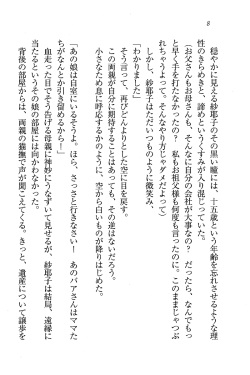 8
穏やかに見える紗耶子のその黒い瞳には、十五歳という年齢を忘れさせる理
性のきらめきと、諦めというくすみが入り混じっていた。
（お父さんもお母さんも、そんなに自分の会社が大事なの？　だったら、なんでもっ
と早く手を打たなかったの？　私もお祖父様も何度も言ったのに。このままじゃつぶ
れちゃうよって。そんなやり方じゃダメだよって）
しかし、紗耶子はいつものように微笑み、
「わかりました」
そう言って、再びどんよりとした空に目を戻す。
この両親が自分に期待することはあっても、その逆はないだろう。
小さなため息に呼応するかのように、空から白いものが降りはじめた。
「あの娘は自室にいるそうよ。ほら、さっさと行きなさい！　あのバアさんはママた
ちがなんとか引き留めるから！」
血走った目で告げる母親に神妙にうなずいて見せるが、紗耶子は結局、遠縁に
当たるというその娘の部屋には向かわなかった。
背後の部屋からは、両親の猫撫で声が聞こえてくる。きっと、遺産について譲歩を